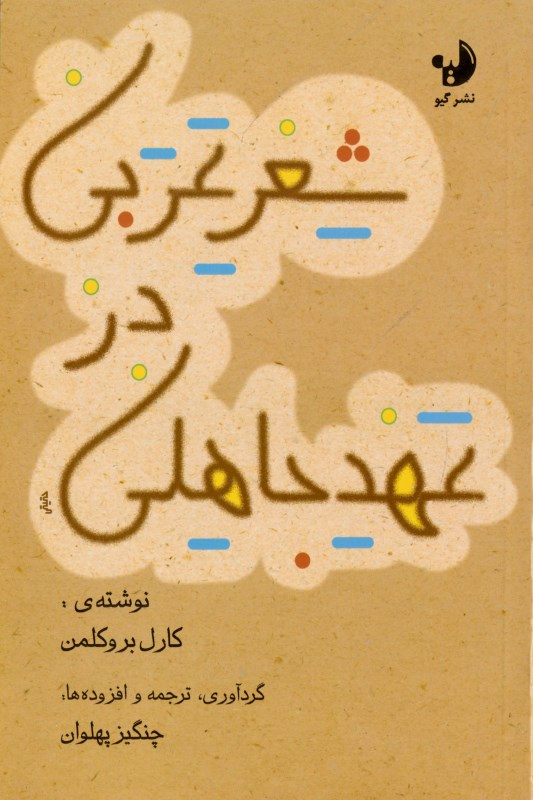 نشر گیو
شعر عربی
در
عهد جاهلی
حقیقی
نوشته‌ی :
کارل بروکلمن
گردآوری، ترجمه و افزوده‌ها:
چنگیز پهلوان